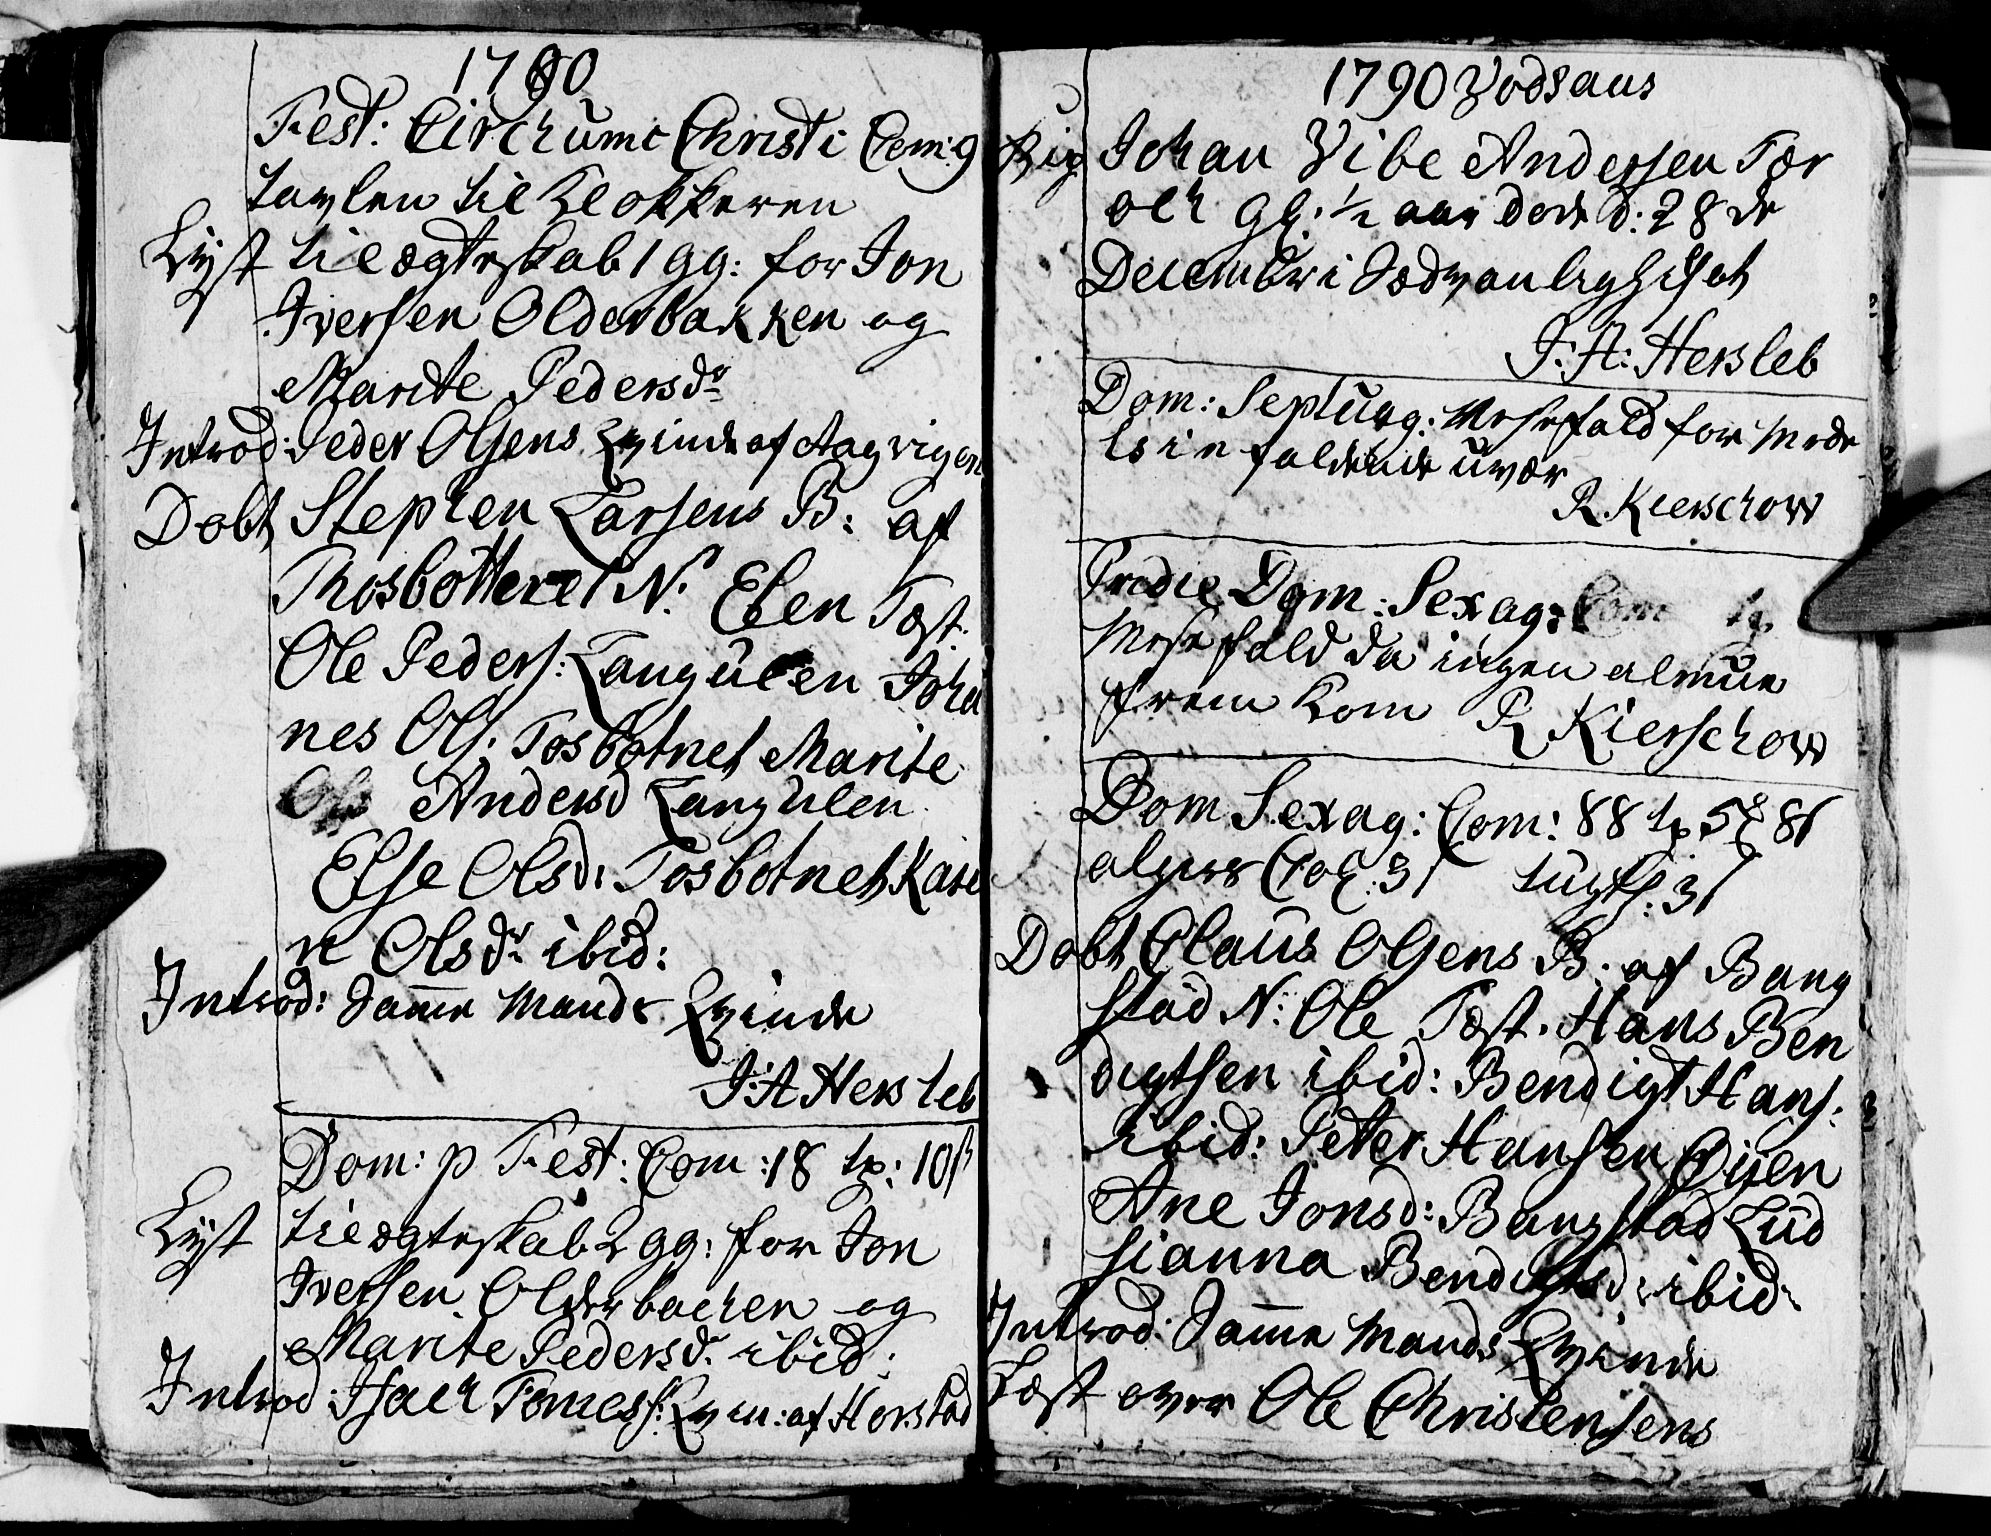 1790
Fest: Circhumc Christi Com: 9
tavlen til Klokkeren
Lyst til ægteskab 1 gg: for Jon
Iversen Olderbakken og
Marite Pedersdr
Introd: Peder Olsens Qvinde af Aagvigen
Døbt Stephen Larsens B: af
Thosbottenet N: Eben Test:
Ole Peders: Langulen Joha
nes Ols: Tosbotnet Marite
Andersd Langulen
Else Olsd: Tosbotnet Kare
n Olsdr ibid:
Introd: Samme Mands Qvinde
J: A Hersleb
Dom: p Fest: Com: 18 tp: 10 ß
Lyst til ægteskab 2 gg: for Jon
Iversen Olderbachen og
Marite Pedersdr ibid:
Introd: Isach Tomess: Qvin: af Horstad
1790 Vodsaus
Johan Vibe Andersen Tør
och gl: 1/2 aar døde d: 28 de
Decembri Sædvanlig
J: A: Hersleb
Dom: Septuag: Messefald for
faldende uvær
R. Kierschow
Pridie Dom: Sexag: Com tp
Messefald da ingen almue
frem kom R. Kierschow
Dom Sexag: Com: 88 tp 5 81
31 tugts: 31
Døbt Claus Olsens B: af Bang
stad N: Ole Test. Hans Ben
digtsen ibid: Bendigt Hans:
ibid: Petter Hansen Øijen
Ane Jonsd: Bangstad Lud
sianna Bendigtsd: ibid:
Introd: Samme Mands Qvinde
Læst over Ole Christensens